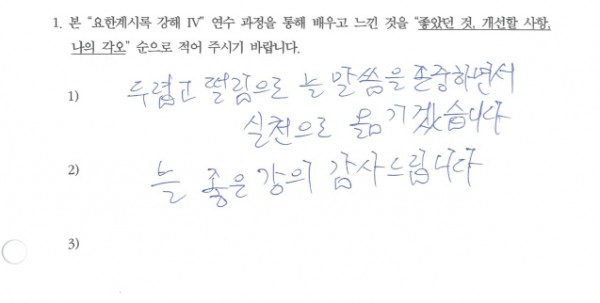 1. 본 "요한계시록 강해 IV" 연수 과정을 통해 배우고 느낀 것을 "좋았던 것, 개선할 사항,
나의 각오" 순으로 적어 주시기 바랍니다.
1) 두렵고 떨림으로 늘 말씀을 존중하면서
실천으로 옮기겠습니다
2) 늘 좋은 강의 감사드립니다
3)